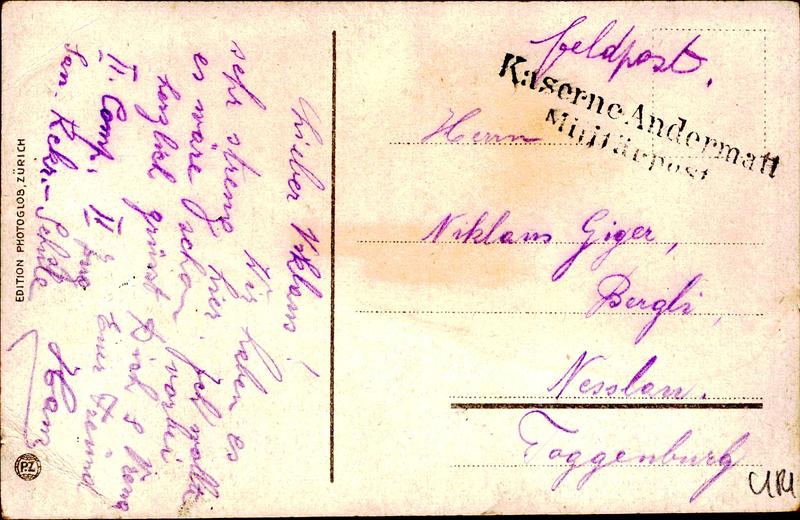 Lieber Niklaus!
Wir haben es
sehr streng hier. Ich wollte
es wäre schon vorbei
herzlich grüsst Dich & Vreni
Euer Freund
Hans
II. Comp. II Zug
San. Rekr.-Schule
EDITION PHOTOGLOB, ZÜRICH
PZ
Feldpost.
Kaserne Andermatt
Militärpost
Herrn
Niklaus Giger,
Bergli,
Nesslau.
Toggenburg
URI